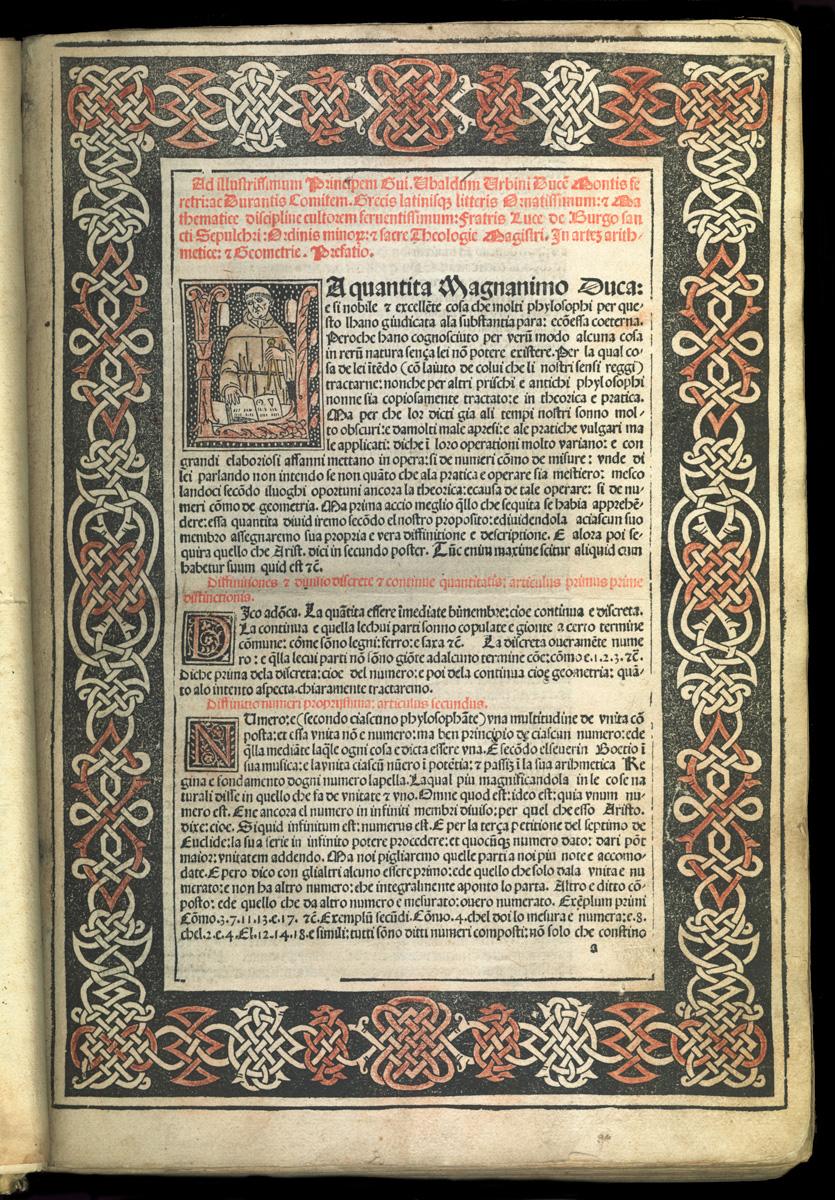 Ad illustrissimum Principem Gui. Ubaldum Urbini Ducē Montis fe
retri: ac Durantis Comitem. Grecis latinisqȝ litteris Ornatissimum: ⁊ Ma
thematice discipline cultorem feruentissimum: Fratris Luce de Burgo san
cti Sepulchri: Ordinis minoꝝ: ⁊ sacre Theologie Magistri. In arteȝ arith-
metice: ⁊ Geometrie. Prefatio.
A quantita Magnanimo Duca:
e si nobile ⁊ excellēte cosa che molti phylosophi per que-
sto lhano giudicata ala substantia para: ecōessa coeterna.
Peroche hano cognosciuto per verū modo alcuna cosa
in rerū natura sença lei nō potere existere. Per la qual co-
sa de lei ītēdo (cō laiuto de colui che li nostri sensi reggi)
tractarne: nonche per altri prischi e antichi phylosophi
nonne sia copiosamente tractato: e in theorica e pratica.
Ma per che lor dicti gia ali tempi nostri sonno mol-
to obscuri: e da molti male apresi: e ale pratiche vulgari ma
le applicati: diche ī loro operationi molto variano: e con
grandi elaboriosi affanni mettano in opera: si de numeri cōmo de misure: vnde di
lei parlando non intendo se non quāto che ala pratica e operare sia mestiero: mesco
landoci secōdo iluoghi oportuni ancora la theorica: e causa de tale operare: si de nu-
meri cōmo de geometria. Ma prima accio meglio q̄llo che sequita se habia apprehē-
dere: essa quantita diuid iremo secōdo el nostro proposito: ediuidendola aciascun suo
membro assegnaremo sua propria e vera diffinitione e descriptione. E alora poi se-
quira quello che Arist. dici in secundo poster. Tūc enim maxime scitur aliquid cum
habetur suum quid est ⁊c̄.
Diffinitiones ⁊ diuisio discrete ⁊ continue quantitatis: articulus primus prime
distinctionis.
DIco adōca. La quātita essere īmediate bimembre: cioe continua e discreta.
La continua e quella lechui parti sonno copulate e gionte a certo termine
cōmune: cōme sōno legni: ferro: e saxa ⁊c̄. La discreta oueramēte nume
ro: e q̄lla lecui parti nō sōno giōte ad alcuno termine cōe: cōmo e. 1. 2. 3. ⁊c̄.
Diche prima dela discreta: cioe del numero: e poi dela continua cioe geometria: quā-
to alo intento aspecta. chiaramente tractaremo.
Diffinitio numeri propriissima: articulus secundus.
NUmero: e (secondo ciascuno phylosophāte) vna multitudine de vnita cō
posta: et essa vnita nō e numero: ma ben principio de ciascun numero: ede
q̄lla mediāte laq̄le ogni cosa e dicta essere vna. E secōdo elseuerin Boetio ī
sua musica: e la vnita ciascū nūero ī potētia: ⁊ passiȝ ī la sua arihmetica Re
gina e fondamento dogni numero lapella. Laqual piu magnificandola in le cose na
turali disse in quello che fa de vnitate ⁊ vno. Omne quod est: ideo est: quia vnum nu-
mero est. Ene ancora el numero in infiniti membri diuiso: per quel che esso Aristo.
dixe: cioe. Siquid infinitum est: numerus est. E per la terça petitione del septimo de
Euclide: la sua serie in infinito potere procedere: et quocūqȝ numero dato: dari pōt
maior: vnitatem addendo. Ma noi pigliaremo quelle parti a noi piu note e accomo-
date. E pero dico con glialtri alcuno essere primo: ede quello che solo dala vnita e nu
merato: e non ha altro numero: che integralmente aponto lo parta. Altro e ditto cō-
posto: ede quello che da altro numero e mesurato: ouero numerato. Exēplum primi
Cōmo. 3. 7. 11. 13. e. 17. ⁊c̄. Exemplū secūdi. Cōmo. 4. chel doi lo mesura e numera: e. 8.
chel. 2. e. 4. El. 12. 14. 18. e simili: tutti sōno ditti numeri composti: nō solo che constino
a